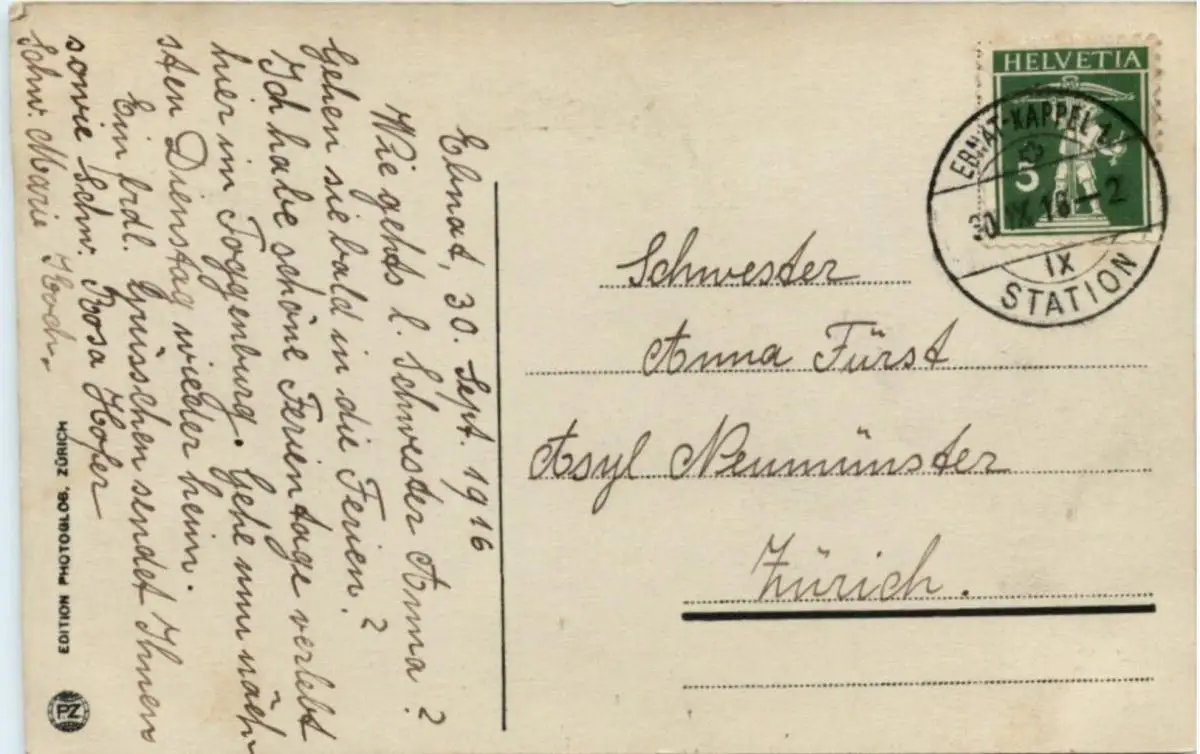 Ebnat, 30. Sept. 1916
Wie gehts l. Schwester Anna?
Gehen sie bald in die Ferien?
Ich habe schöne Ferientage verlebt
hier im Toggenburg. Gehe nun näch-
sten Dienstag wieder heim.
Ein frdl. Grüsschen sendet Ihnen
sowie Schw. Rosa Hofer
Schw. Marie Hoch.
EDITION PHOTOGLOB, ZÜRICH
PZ
HELVETIA
5
EBNAT-KAPPEL
30 IX 16 – 2
IX
STATION
Schwester
Anna Fürst
Asyl Neumünster
Zürich.